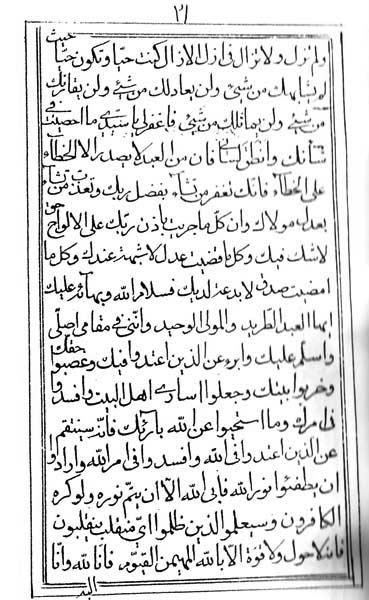 ٢١
ولم تزل ولا تزال في ازل الازال كنت حيا وتكون حيا حيث
لم يشابهك من شيئ ولن يعادلك من شيئ ولن يقارنك
من شيئ ولن يماثلك من شيئ فاغفر لي يا سيدي ما احصيت في
شأنك وانطق لساني فان من العبد لا يصدر الا الخطاء
على الخطاء فانك تغفر من تشاء بفضل ربك وتعذب من تشاء
بعدل مولاك وان كل ما جريت باذن ربك على الالواح حق
لا شك فيك وكل ما قضيت عدل لا شبهة عندك وكل ما
امضيت صدق لا بدعة لديك فسلام الله وبهائه عليك
ايها العبد الطريد والمولى الوحيد وانني في مقامي اصلي
واسلم عليك وابرء عن الذين اعتدوا فيك وغصبوا حقك
وخربوا بيتك وجعلوا اسارى اهل البيت وافسدوا
في امرك وما استحيوا عن الله بارئك فانه سينتقم
عن الذين اعتدوا في الله وافسدوا في امر الله وارادوا
ان يطفئوا نور الله فابى الله الا ان يتم نوره ولو كره
الكافرون وسيعلموا الذين ظلموا اي منقلب ينقلبون
فانه لا حول ولا قوة الا بالله المهيمن القيوم فانا لله وانا
اليه